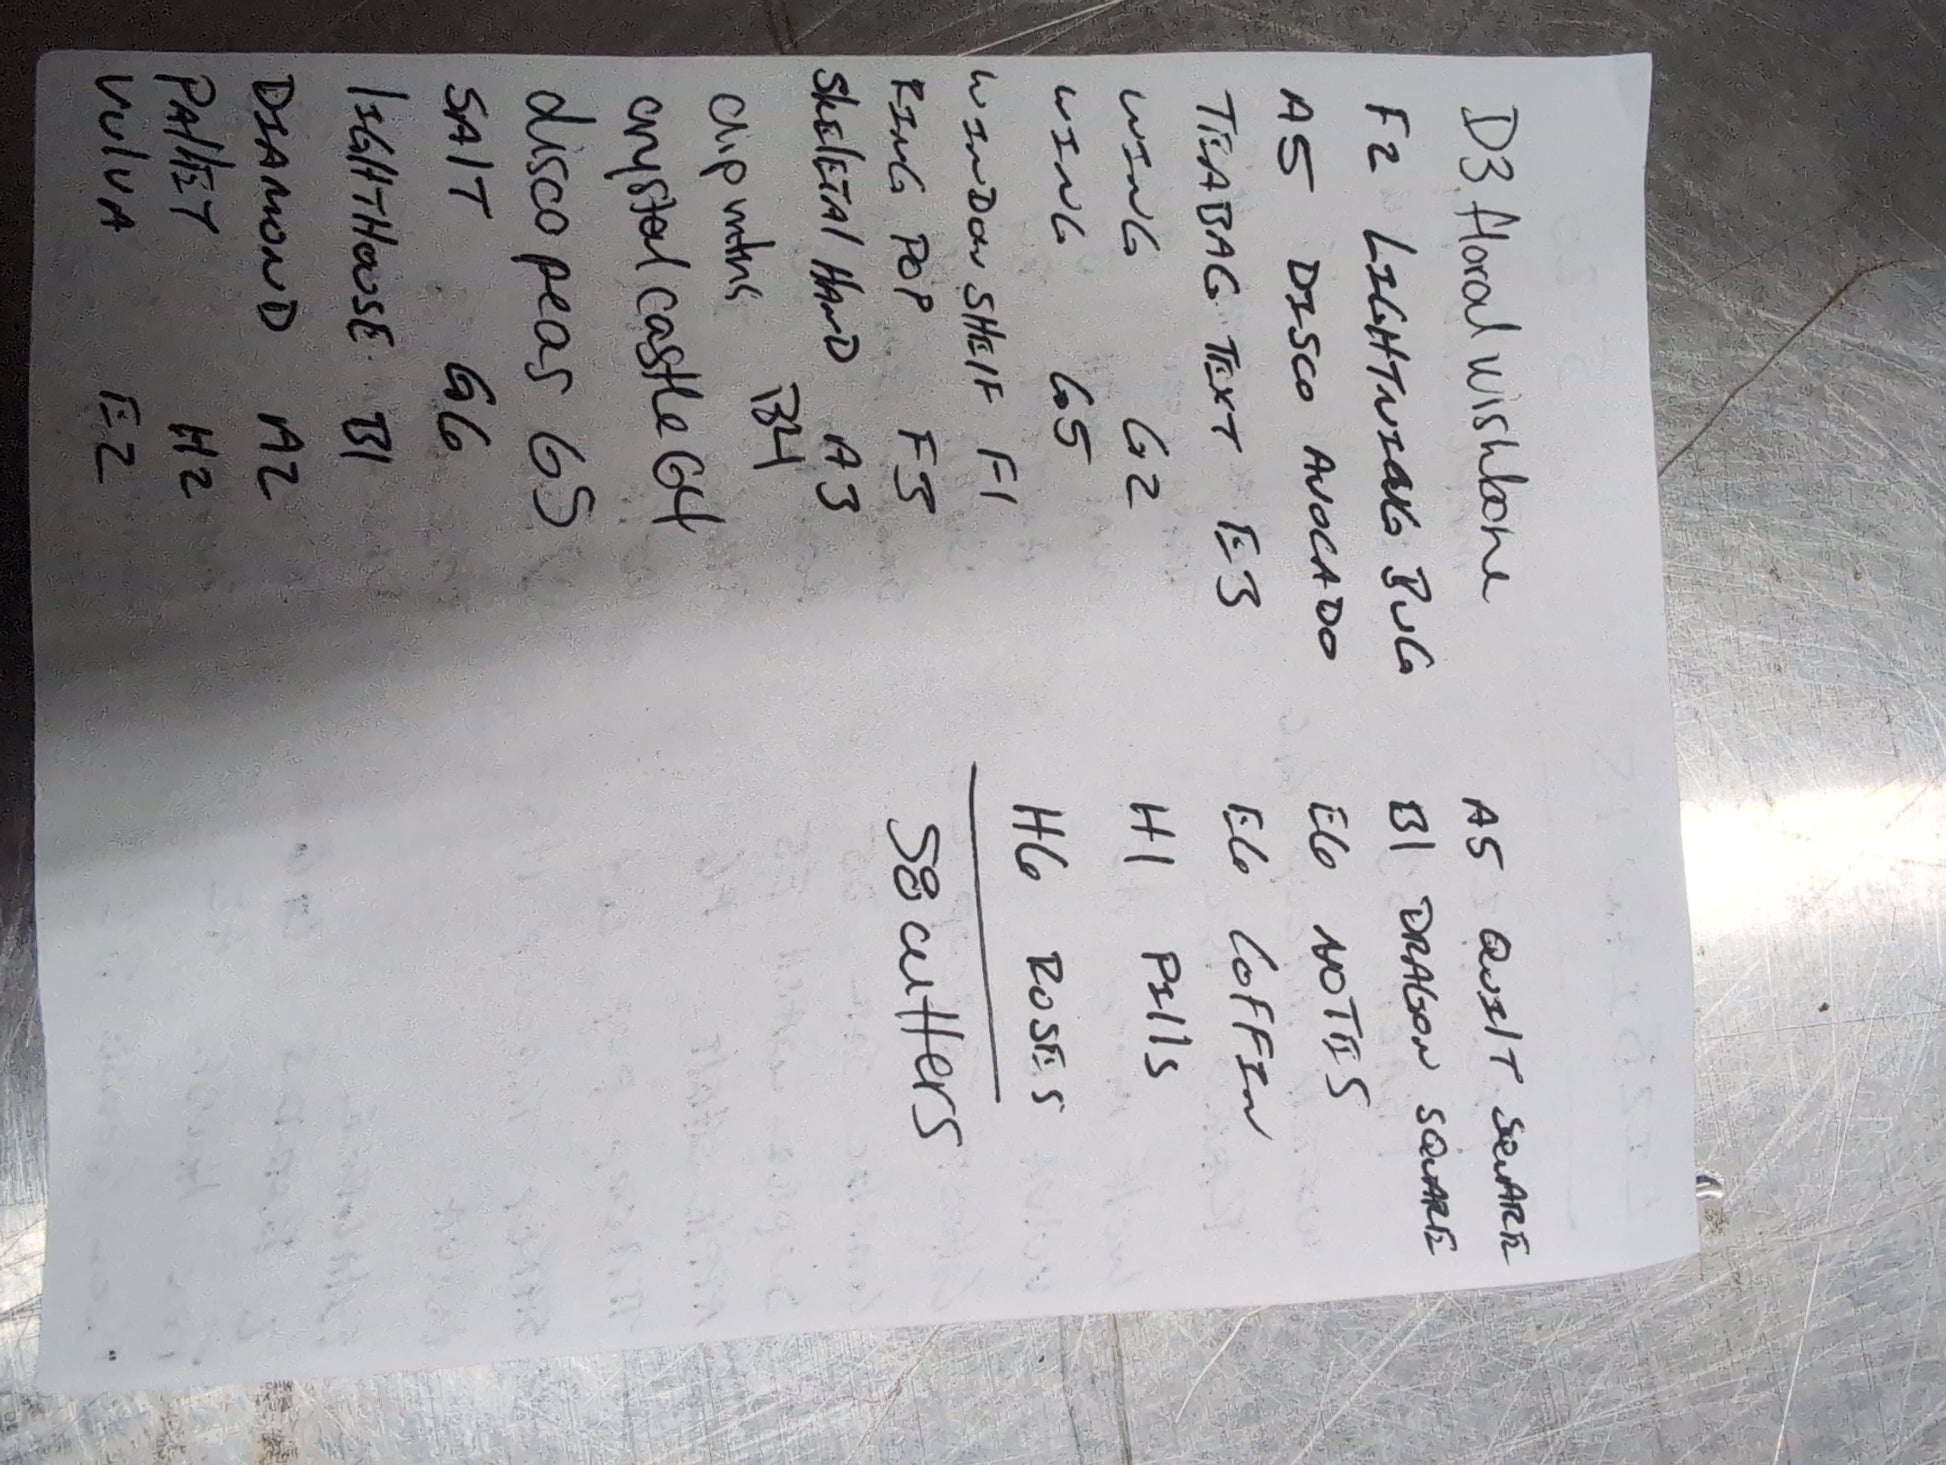 D3 floral wishbone
F2 LIGHTNING BUG
A5 DISCO AVOCADO
TEABAG TEXT E3
WING G2
WING G5
WINDOW SHElF F1
RING POP F5
SkElETAl HAND A3
clip mtns B4
crystal castle G4
disco peas G5
SAlT G6
lIGHTHOUSE B1
DIAMOND A2
PAllET H2
VUlVA E2
A5 QUIlT SQUARE
B1 DRAGON SQUARE
E6 NOTES
E6 COFFIN
H1 PIlls
H6 ROSES
58 cutters